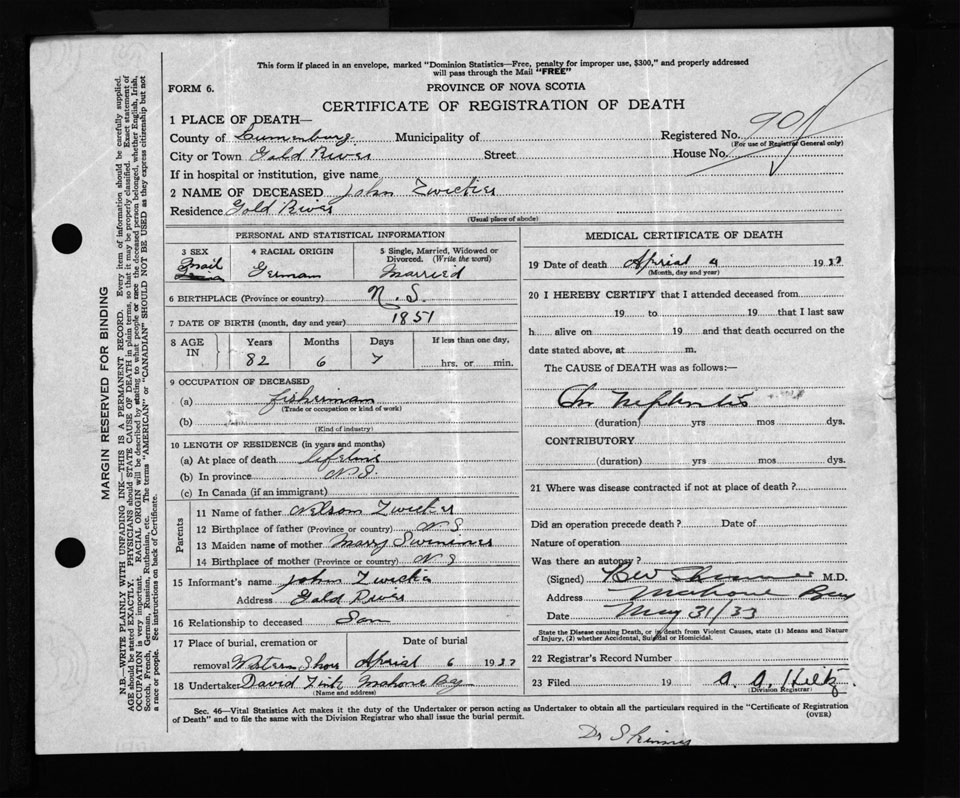 This form if placed in an envelope, marked "Dominion Statistics—Free, penalty for improper use, $300," and properly addressed
will pass through the Mail "FREE"
FORM 6.
PROVINCE OF NOVA SCOTIA
CERTIFICATE OF REGISTRATION OF DEATH
1 PLACE OF DEATH—
County of Lunenburg Municipality of Registered No. 901
(For use of Registrar General only)
City or Town Gold River Street House No.
If in hospital or institution, give name
2 NAME OF DECEASED John Zwicker
Residence Gold River
(Usual place of abode)
PERSONAL AND STATISTICAL INFORMATION
3 SEX 4 RACIAL ORIGIN 5 Single, Married, Widowed or
Divorced. (Write the word)
German Married
6 BIRTHPLACE (Province or country) N. S.
7 DATE OF BIRTH (month, day and year) 1851
8 AGE IN Years Months Days If less than one day,
82 6 7 hrs. or min.
9 OCCUPATION OF DECEASED
(a) fisherman
(Trade or occupation or kind of work)
(b)
(Kind of industry)
10 LENGTH OF RESIDENCE (in years and months)
(a) At place of death lifetime
(b) In province N S
(c) In Canada (if an immigrant)
Parents
11 Name of father Nelson Zwicker
12 Birthplace of father (Province or country) N S
13 Maiden name of mother Marry
14 Birthplace of mother (Province or country) N S
15 Informant's name John Zwicker
Address Gold River
16 Relationship to deceased Son
17 Place of burial, cremation or Date of burial
removal Western Shore Aprial 6 1933
18 Undertaker David Zink Mahone Bay
(Name and address)
MEDICAL CERTIFICATE OF DEATH
19 Date of death Aprial 4 1933
(Month, day and year)
20 I HEREBY CERTIFY that I attended deceased from
19 to 19 that I last saw
h alive on 19 and that death occurred on the
date stated above, at m.
The CAUSE of DEATH was as follows:—
Chr Nephritis
(duration) yrs mos dys.
CONTRIBUTORY
(duration) yrs mos dys.
21 Where was disease contracted if not at place of death?
Did an operation precede death? Date of
Nature of operation
Was there an autopsy?
(Signed) M.D.
Address Mahone Bay
Date May 31/33
State the Disease causing Death, or in death from Violent Causes, state (1) Means and Nature
of Injury, (2) whether Accidental, Suicidal or Homicidal.
22 Registrar's Record Number
23 Filed 19
(Division Registrar)
Sec. 46—Vital Statistics Act makes it the duty of the Undertaker or person acting as Undertaker to obtain all the particulars required in the "Certificate of Registration
of Death" and to file the same with the Division Registrar who shall issue the burial permit. (OVER)
Dr Skinner
MARGIN RESERVED FOR BINDING
N.B.—WRITE PLAINLY WITH UNFADING INK—THIS IS A PERMANENT RECORD. Every item of information should be carefully supplied.
AGE should be stated EXACTLY. PHYSICIANS should STATE CAUSE OF DEATH in plain terms, so that it may be properly classified. Exact statement of
OCCUPATION is very important. RACIAL ORIGIN will be described by stating to what people or race the deceased person belonged, whether English, Irish,
Scotch, French, German, Russian, Ruthenian, etc. The terms "AMERICAN" or "CANADIAN" SHOULD NOT BE USED as they express citizenship but not
a race or people. See instructions on back of Certificate.